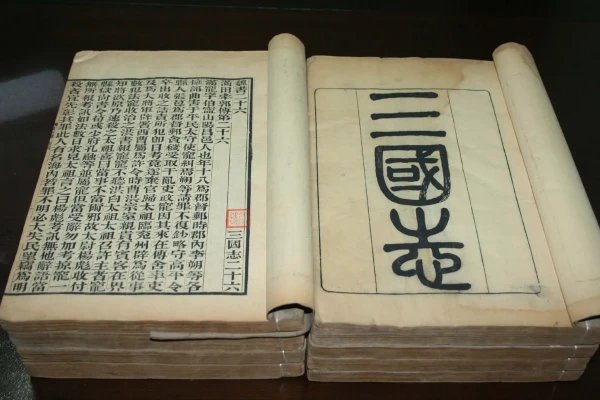 三國志
魏書二十六
滿田牽郭傳第二十六
滿寵字伯寧山陽昌邑人也年十八爲郡督郵時郡內李朔等各
擁部曲害于平民太守使寵糾焉朔等請罪不復鈔略守高平令
縣人張苞爲郡督郵貪穢受取干亂吏政寵因其來在傳舍率吏
卒出收之詰責所犯卽日考竟遂棄官歸太祖臨兗州辟爲從事
及爲大將軍辟署西曹屬爲許令時曹洪宗室親貴有賓客在界
數犯法寵收治之洪書報寵寵不聽洪白太祖太祖召許主者寵
知將欲原乃速殺之太祖喜曰當事不當爾邪故太尉楊彪收付
縣獄尚書令荀彧少府孔融等並屬寵但當受辭勿加考掠寵一
無所報考訊如法數日求見太祖言之曰楊彪考訊無他辭語當
殺者宜先彰其罪此人有名海內若罪不明必大失民望竊爲明
三國志二十六